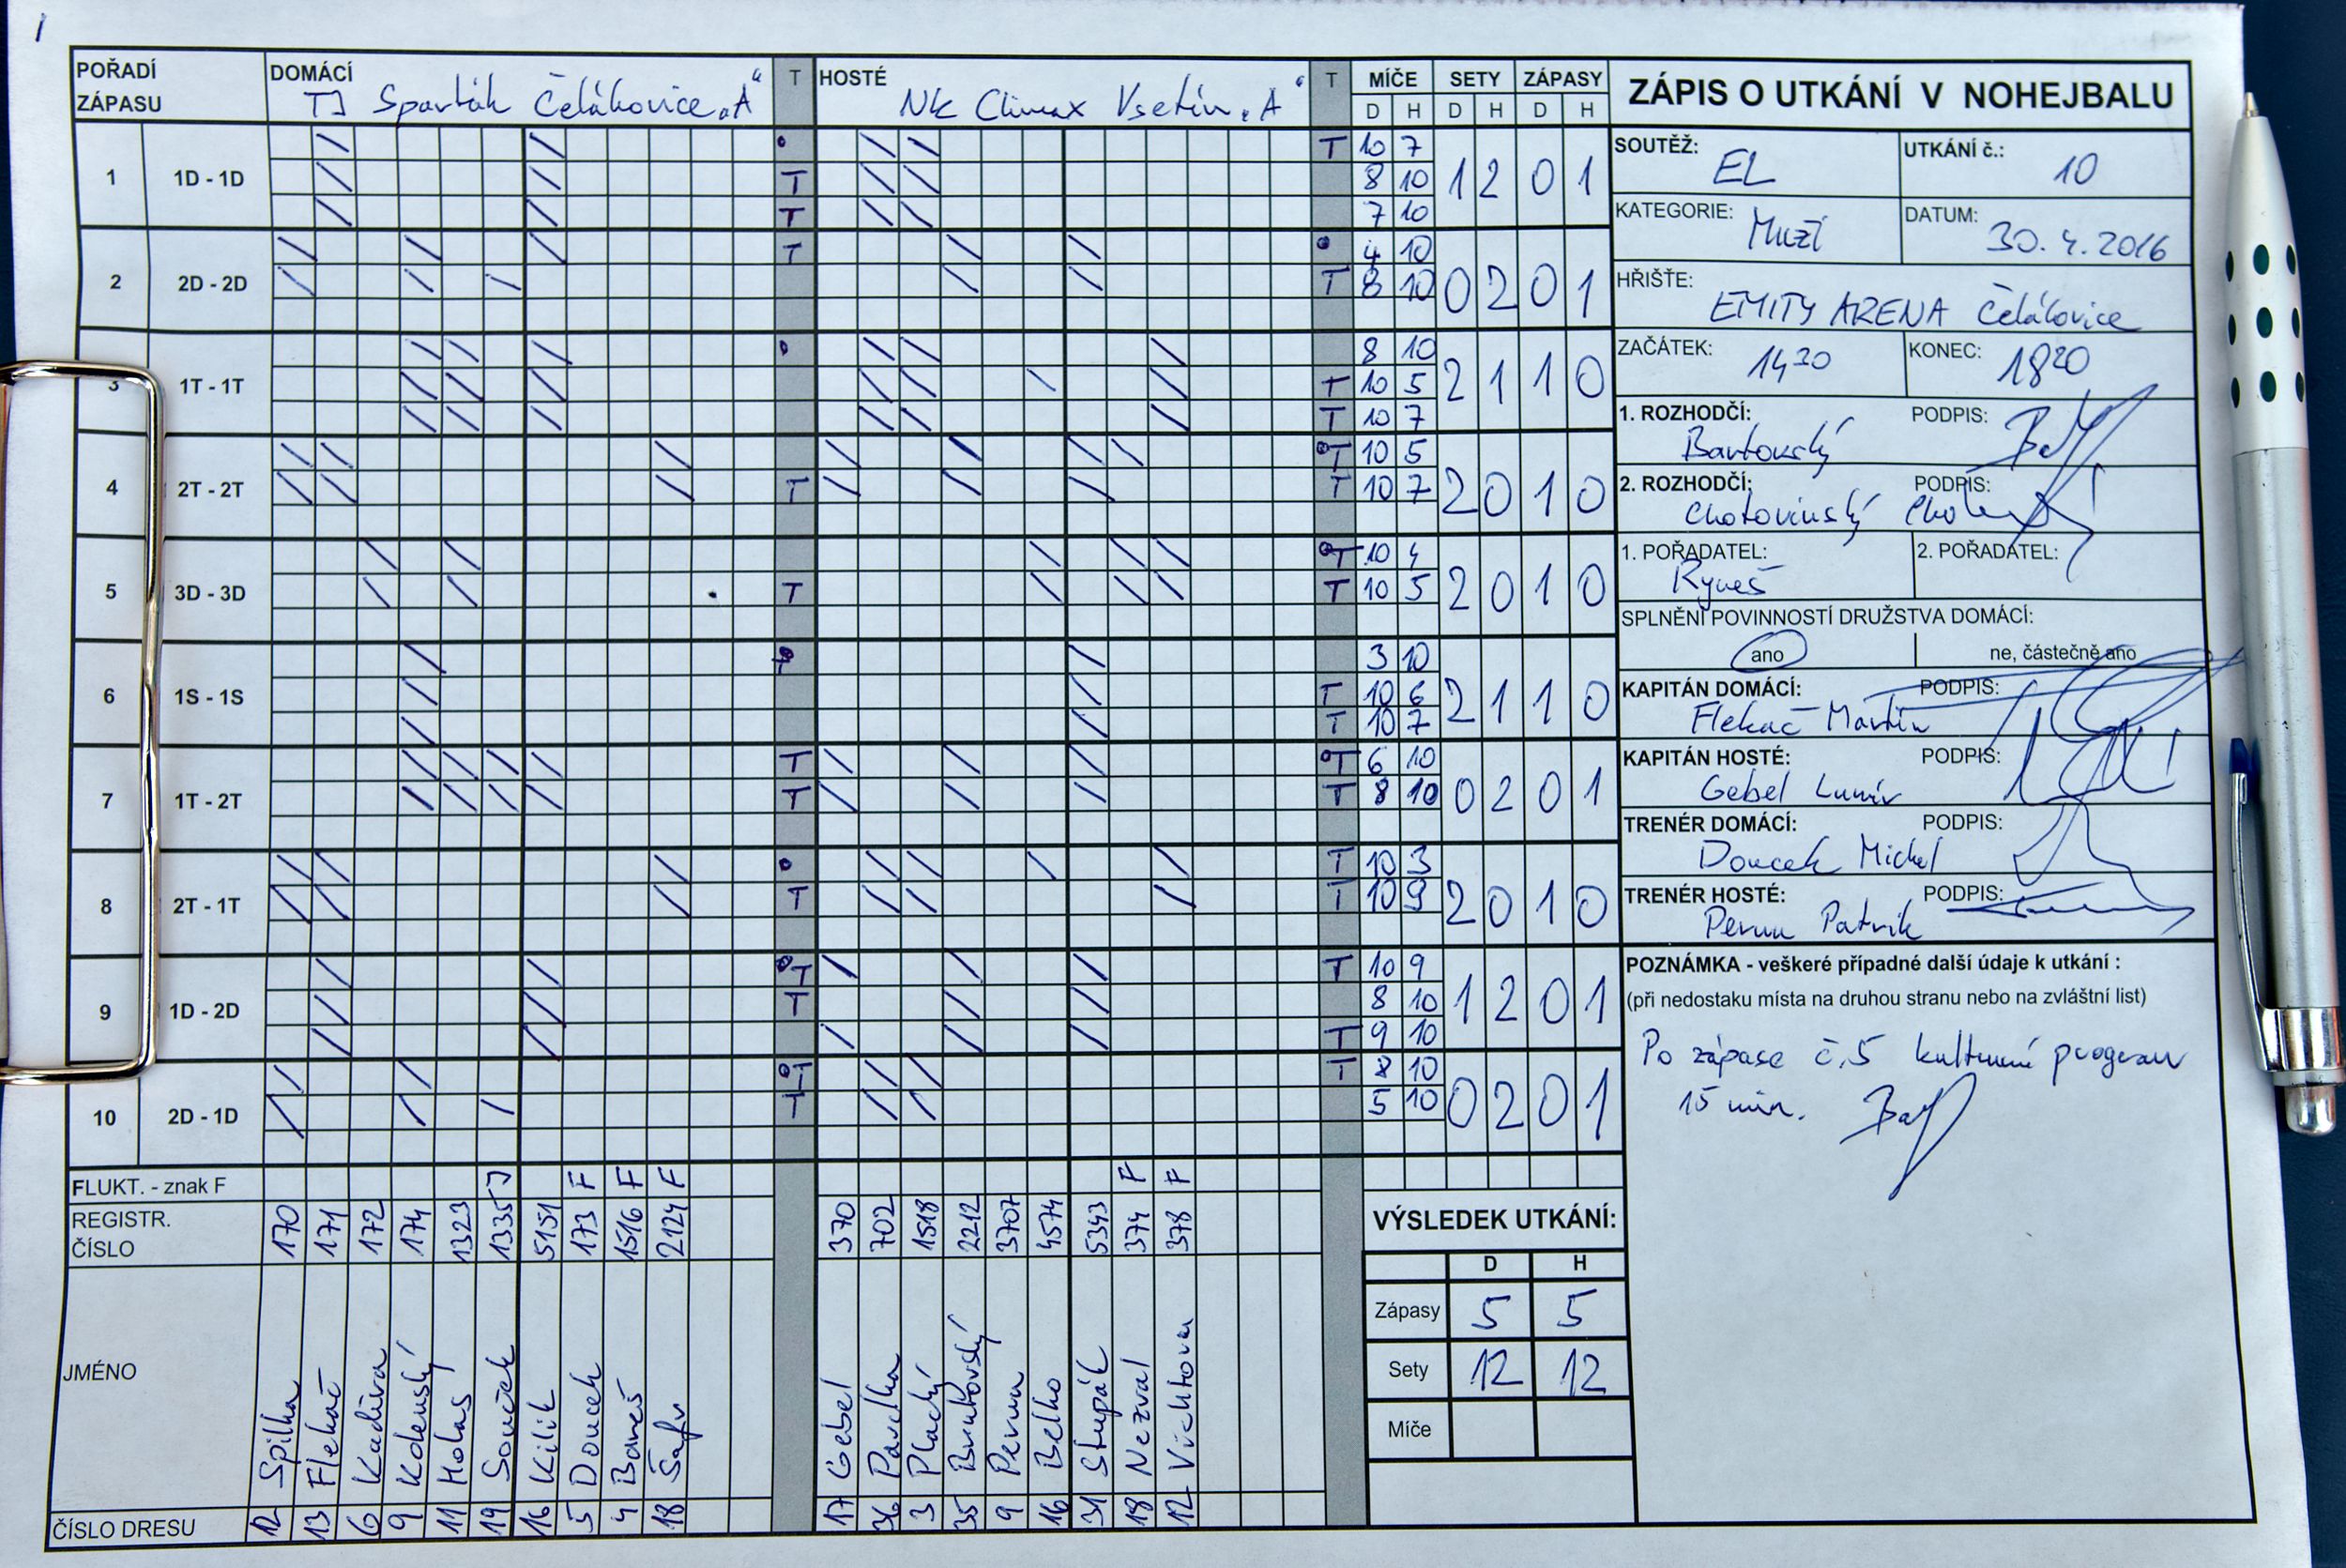 1
POŘADÍ ZÁPASU
DOMÁCÍ TJ Spartak Čelákovice „A“ T
HOSTÉ NK Climax Vsetín „A“ T
MÍČE SETY ZÁPASY
D H D H D H
1 1D - 1D T T T 10 7 8 10 7 10 1 2 0 1
2 2D - 2D T T 4 10 8 10 0 2 0 1
3 1T - 1T T T 8 10 10 5 10 7 2 1 1 0
4 2T - 2T T T T 10 5 10 7 2 0 1 0
5 3D - 3D T T T 10 4 10 5 2 0 1 0
6 1S - 1S T T T 3 10 10 6 10 7 2 1 1 0
7 1T - 2T T T T T 6 10 8 10 0 2 0 1
8 2T - 1T T T T 10 3 10 9 2 0 1 0
9 1D - 2D T T T T 10 9 8 10 9 10 1 2 0 1
10 2D - 1D T T T 8 10 5 10 0 2 0 1
FLUKT. - znak F J F F F F F
REGISTR. ČÍSLO 170 171 172 174 1323 1335 5151 173 1516 2124 370 702 1518 2212 3707 4574 5343 374 378
JMÉNO Spilka Flekač Kadira Kolenský Holas Souček Kilik Doucek Bareš Šafr Gebel Pavlka Plachý Brutovský Perun Belko Stupák Nezval Víchtora
ČÍSLO DRESU 12 13 6 9 11 19 16 5 4 18 17 36 3 35 9 16 31 18 12
VÝSLEDEK UTKÁNÍ:
D H
Zápasy 5 5
Sety 12 12
Míče
ZÁPIS O UTKÁNÍ V NOHEJBALU
SOUTĚŽ: EL UTKÁNÍ č.: 10
KATEGORIE: Muži DATUM: 30. 4. 2016
HŘIŠTĚ: EMITY ARENA Čelákovice
ZAČÁTEK: 14 30 KONEC: 18 20
1. ROZHODČÍ: Bartovský PODPIS:
2. ROZHODČÍ: Chotovinský PODPIS:
1. POŘADATEL: Ryneš 2. POŘADATEL:
SPLNĚNÍ POVINNOSTÍ DRUŽSTVA DOMÁCÍ:
ano ne, částečně ano
KAPITÁN DOMÁCÍ: Flekač Martin PODPIS:
KAPITÁN HOSTÉ: Gebel Lumír PODPIS:
TRENÉR DOMÁCÍ: Doucek Michal PODPIS:
TRENÉR HOSTÉ: Perun Patrik PODPIS:
POZNÁMKA - veškeré případné další údaje k utkání :
(při nedostaku místa na druhou stranu nebo na zvláštní list)
Po zápase č.5 kulturní program
15 min.